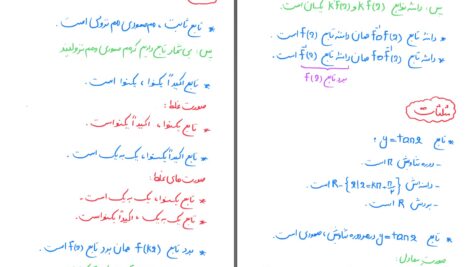 پس: دامنهٔ توابع f(x) و kf(x) یکسان است.
* دامنهٔ تابع f⁻¹of(x) همان دامنهٔ تابع f(x) است.
* دامنهٔ تابع fof⁻¹(x) همان دامنهٔ تابع f⁻¹(x) است.
برد تابع f(x)
مثلثات
* تابع y=tanx :
- دوره تناوبش π است.
- دامنه‌اش R-{x|x=kπ-π/2} است.
- بردش R است.
* تابع y=tanx در هر دوره تناوبش، صعودی است.
صورت معادل:
* تابع ثابت، هم صعودی و هم نزولی است.
پس: بی‌شمار تابع داریم که هم صعودی و هم نزولی‌اند
* تابع اکیداً یکنوا، یکنوا است.
صورت غلط:
* تابع یکنوا، اکیداً یکنوا است.
* تابع اکیداً یکنوا، یک به یک است.
صورت‌های غلط:
* تابع یکنوا، یک به یک است.
* تابع یک به یک، اکیداً یکنواست.
* برد تابع f(kx) همان برد تابع f(x) است.